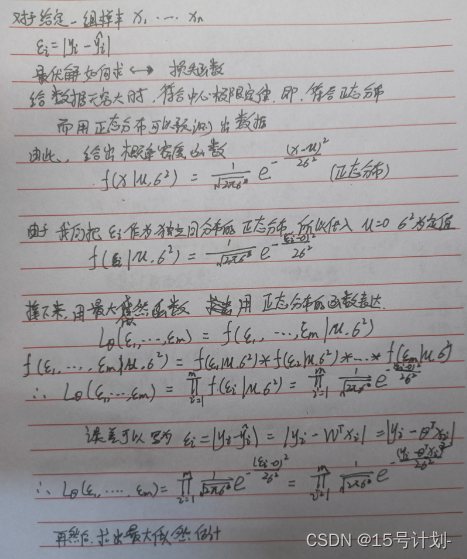 对于给定一组样本 x₁ ... xₙ
εᵢ = |yᵢ - ŷᵢ|
最优解如何求 ↔ 损失函数
给数据无穷大时,符合中心极限定律,即,符合正态分布
而用正态分布可以预测出数据
由此,给出概率密度函数
f(x|μ,6²) = 1/√(2π6²) e^-(x-μ)²/26² (正态分布)
由于我们把 εᵢ 作为独立同分布的正态分布,所以传入 μ=0 6²为定值
f(εᵢ|μ,6²) = 1/√(2π6²) e^-(εᵢ-0)²/26²
接下来,用最大似然函数 用正态分布的函数表达.
L_θ(ε₁,...,εₘ) = f(ε₁,...,εₘ|μ,6²)
f(ε₁,...,εₘ|μ,6²) = f(ε₁|μ,6²)*f(ε₂|μ,6²)*...*f(εₘ|μ,6²)
∴ L_θ(ε₁,...,εₘ) = ∏ᵢ₌₁ᵐ f(εᵢ|μ,6²) = ∏ᵢ₌₁ᵐ 1/√(2π6²) e^-(εᵢ-0)²/26²
误差可以写为 εᵢ = |yᵢ-ŷᵢ| = |yᵢ - Wᵀxᵢ| = |yᵢ - θᵀxᵢ|
∴ L_θ(ε₁,...,εₘ) = ∏ᵢ₌₁ᵐ 1/√(2π6²) e^-(εᵢ-0)²/26² = ∏ᵢ₌₁ᵐ 1/√(2π6²) e^-(yᵢ-θᵀxᵢ)²/26²
再然后,求出最大似然估计
CSDN @15号计划-